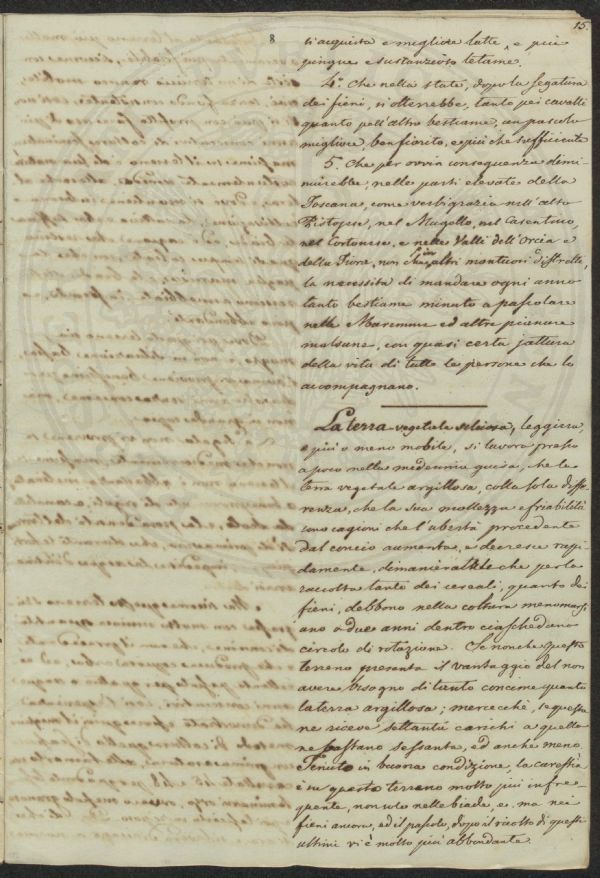 15.
8
s'acquista e migliore latte, e più
pingue e sustanzioso letame.
4.° Che nella state, dopo la segatura
dei fieni, si otterrebbe, tanto pei cavalli
quanto pell'altro bestiame, un pascolo
migliore, ben fiorito, e più che sufficiente
5. Che per ovvia conseguenza dimi-
nuirebbe, nelle parti elevate della
Toscana, come verbigrazia nell'alto
Pistojese, nel Mugello, nel Casentino,
nel Cortonese, e nelle Valli dell'Orcia e
della Fiora, non che in altri montuosi distretti,
la necessità di mandare ogni anno
tanto bestiame minuto a pascolare
nelle Maremme ed altre pianure
malsane, con quasi certa jattura
della vita di tutte le persone che lo
accompagnano.
La terra vegetale selciosa, leggiera,
e più o meno mobile, si lavora presso
a poco nella medesima guisa, che la
terra vegetale argillosa, colla sola diffe-
renza, che la sua mollezza e friabilità
sono cagioni che l'ubertà procedente
dal concio aumenta, e decresce rapi-
damente, dimanieralche che per la
raccolta tanto dei cereali, quanto dei
fieni, debbono nella coltura menomarsi
uno o due anni dentro ciascheduno
circolo di rotazione. Se non che questo
terreno presenta il vantaggio del non
avere bisogno di tanto concime quanto
la terra argillosa; mercecchè, se questa
ne riceve settanta carichi a quello
ne bastano sessanta, ed anche meno.
Tenuto in buona condizione, la carestia
è su questo terreno molto più infre-
quente, non solo nelle biade, ma nei
fieni ancora, ed il pascolo, dopo il ricolto di questi
ultimi vi è molto più abbondante.